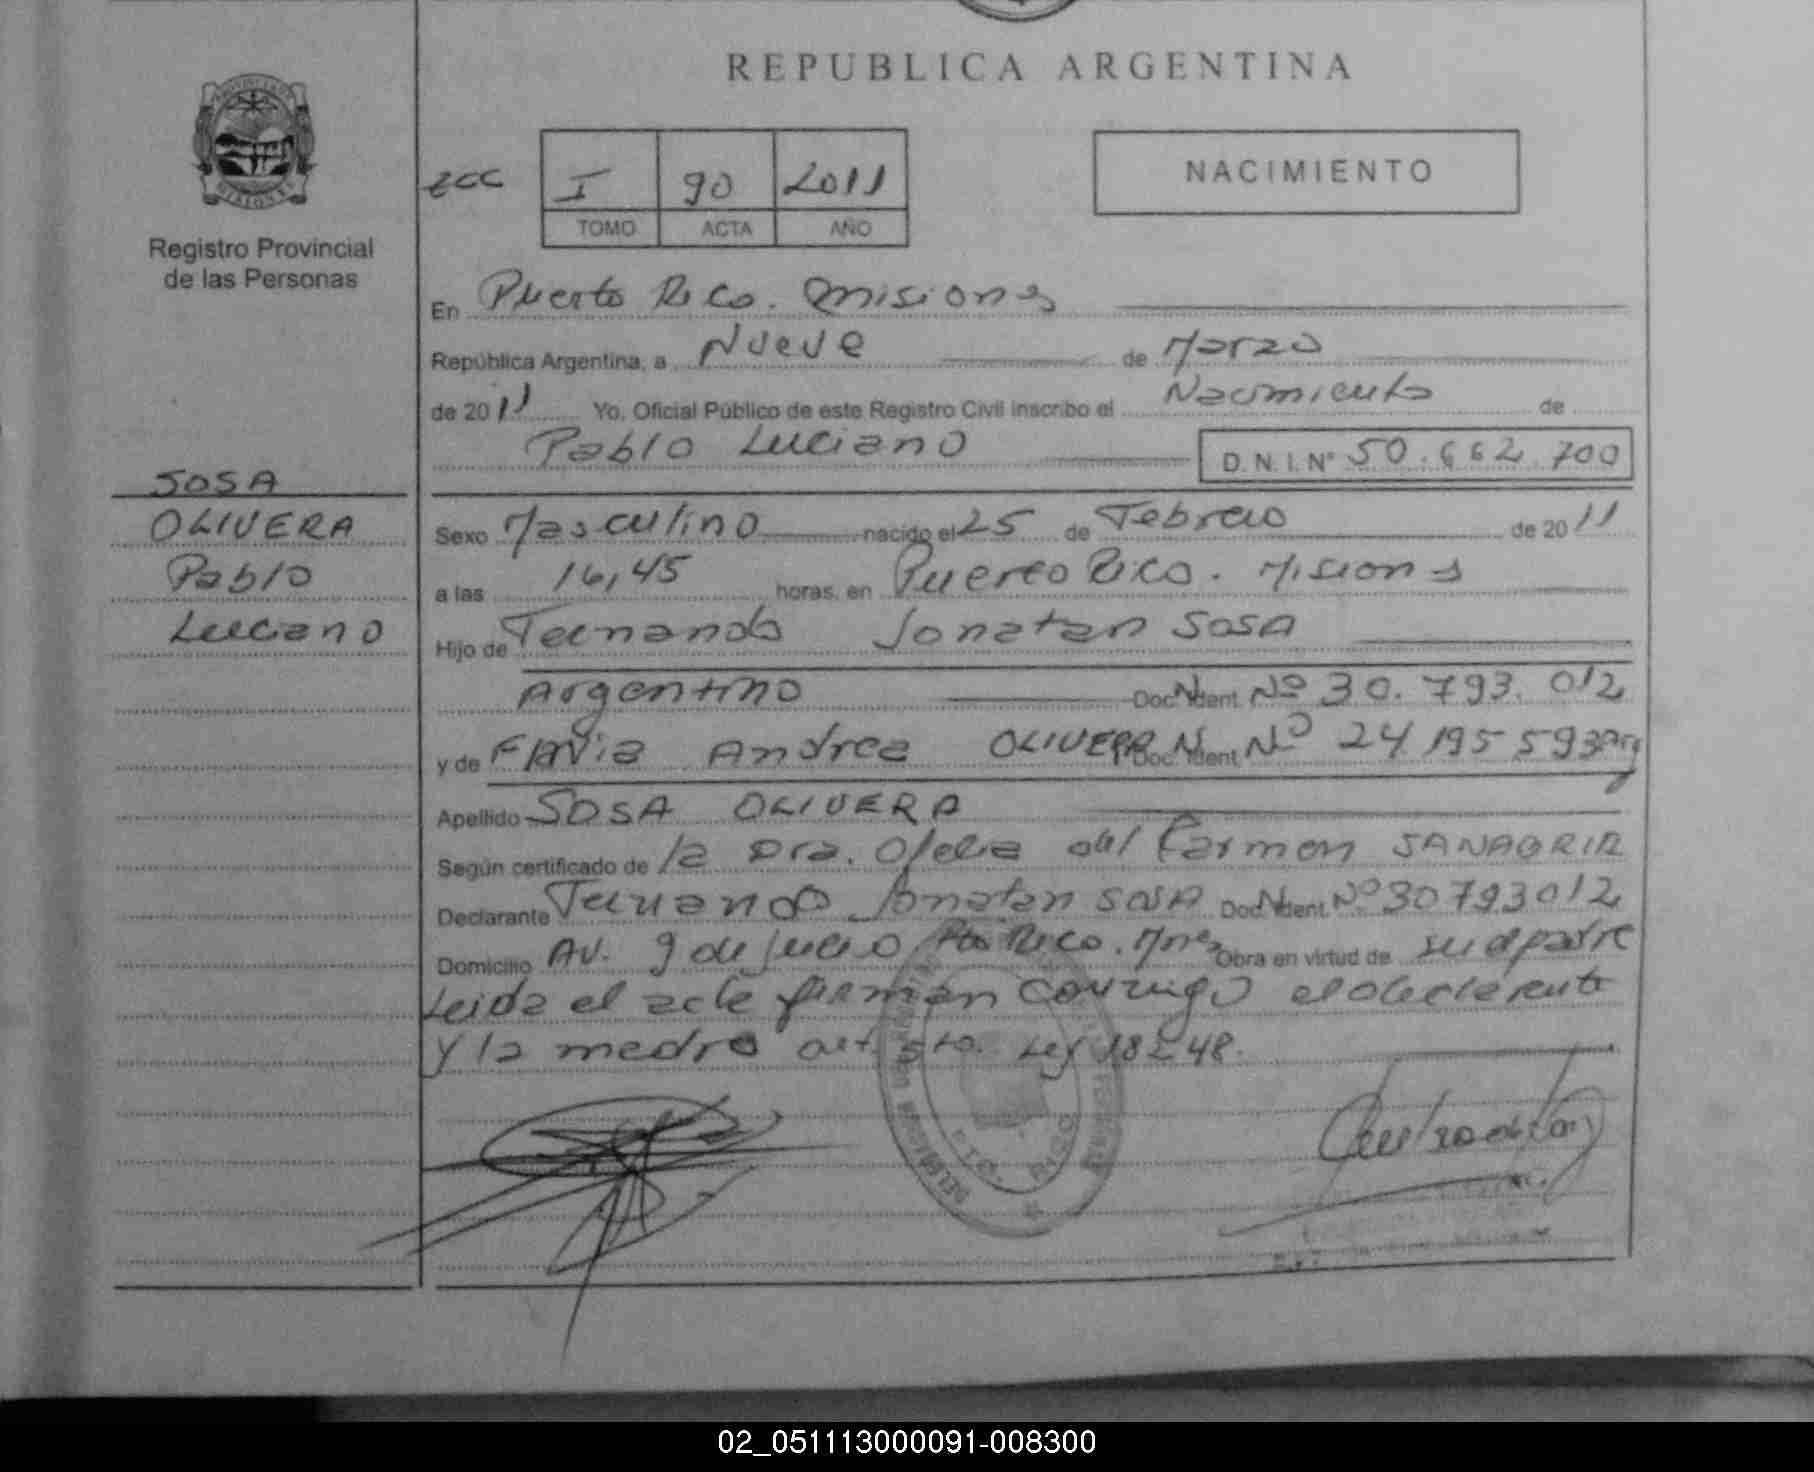 REPUBLICA ARGENTINA
Registro Provincial
de las Personas
I 90 2011
TOMO ACTA AÑO
NACIMIENTO
En Puerto Rico. Misiones
República Argentina, a Nueve de Marzo
de 2011 Yo, Oficial Público de este Registro Civil inscribo el Nacimiento de
Pablo Luciano D.N.I.N° 50.662.700
SOSA
OLIVERA
Pablo
Luciano
Sexo Masculino nacido el 25 de Febrero de 2011
a las 16,45 horas, en Puerto Rico. Misiones
Hijo de Fernando Jonatan SOSA
Argentino Doc. N. Ident. Nº 30.793.012
y de FlaVia Andrea OLIVERA Doc. N. Ident. Nº 24 195 593 Arg
Apellido SOSA OLIVERA
Según certificado de la Dra. Ofelia del Carmen SANABRIA
Declarante Fernando Jonatan SOSA Doc. N. Ident. Nº 30793012
Domicilio Av. 9 de Julio Pto Rico. Mnes Obra en virtud de su d padre
Leida el acta firman conmigo el declarante
y la madre art. 5to. Ley 18248.
02_051113000091-008300